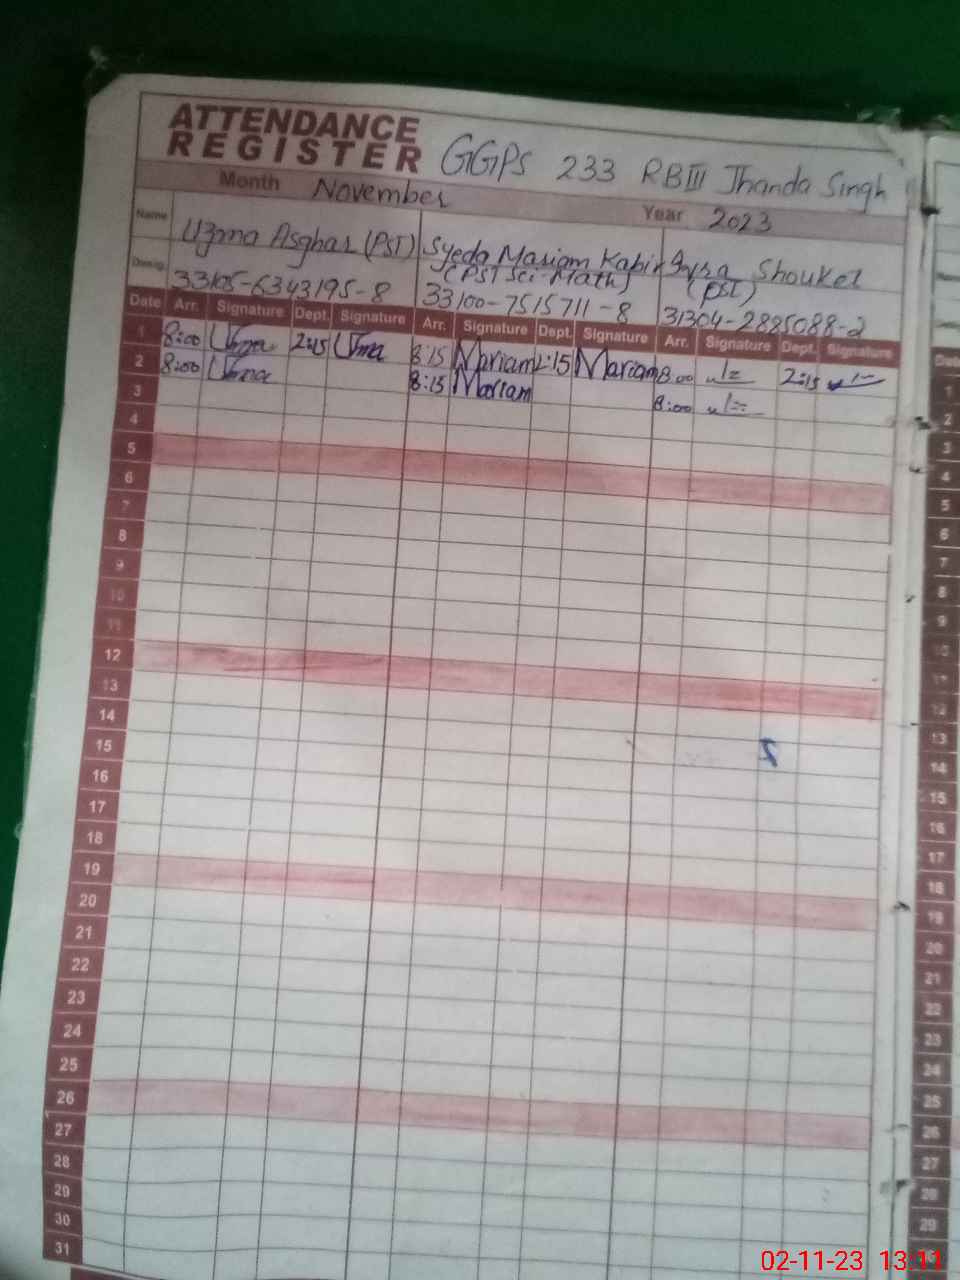 ATTENDANCE
REGISTER GGPS 233 RBIII Jhanda Singh
Month November Year 2023
Name Uzma Asghar (PST) Syeda Mariam Kabir Iqra Shouket
Desig. (PST Sci-Math) (PST)
33105-6343195-8 33100-7515711-8 31304-2885088-2
Date Arr. Signature Dept. Signature Arr. Signature Dept. Signature Arr. Signature Dept. Signature
1 8:00 Uzma 2:15 Uzma 8:15 Mariam 2:15 Mariam 8:00 2:15
2 8:00 Uzma 8:15 Mariam 8:00
3
4
5
6
7
8
9
10
11
12
13
14
15
16
17
18
19
20
21
22
23
24
25
26
27
28
29
30
31
1
2
3
4
5
6
7
8
9
10
11
12
13
14
15
16
17
18
19
20
21
22
23
24
25
26
27
28
29
02-11-23 13:11